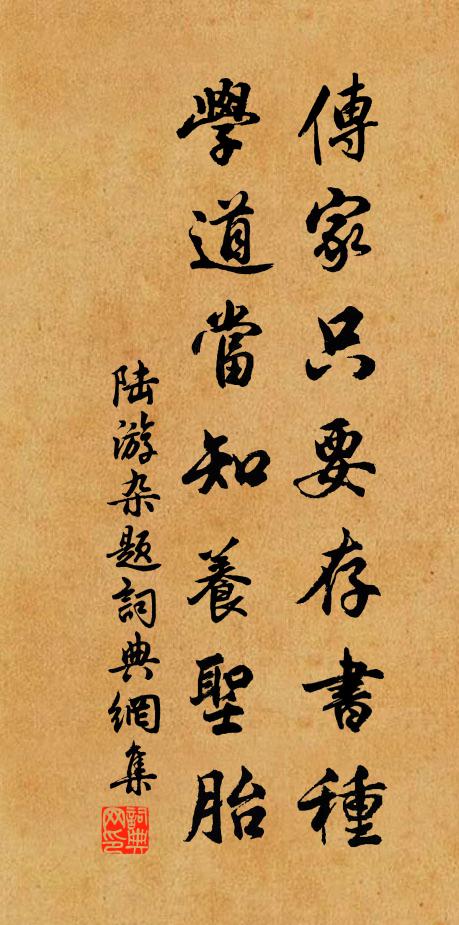 傳家只要存書種
學道當知養聖胎
陆游杂题詞典網集
詞典网印